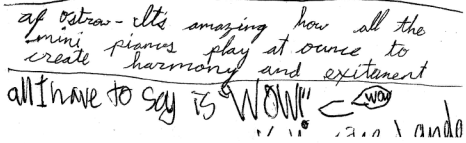 af ostrow - Its amazing how all the
mini pianos play at ounce to
create harmony and exitement
all I have to say is "WOW!" wow